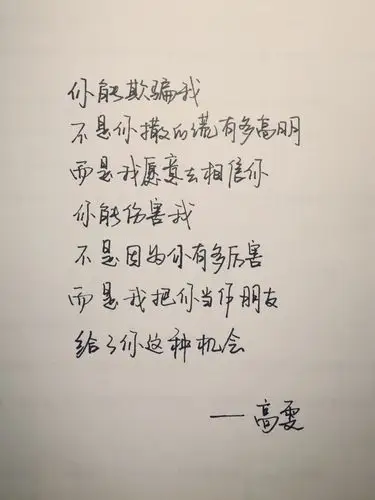 你能欺骗我
不是你撒的谎有多高明
而是我愿意去相信你
你能伤害我
不是因为你有多厉害
而是我把你当作朋友
给了你这种机会
——高雯